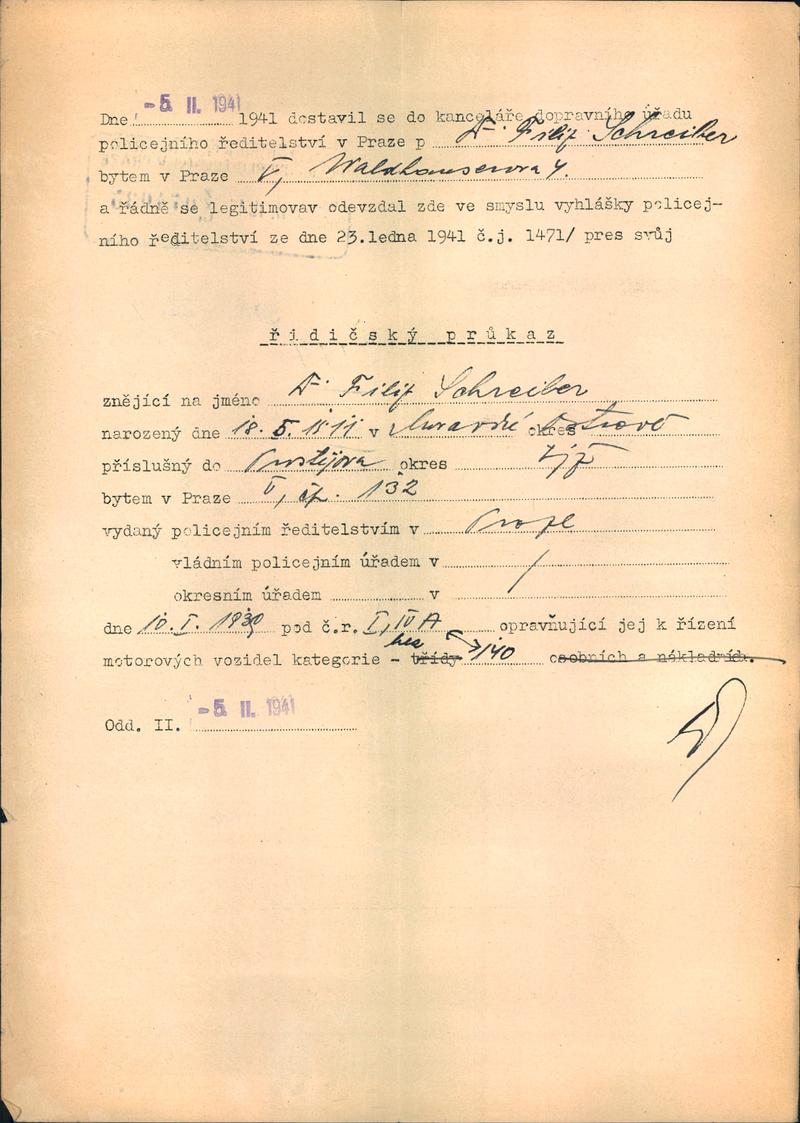 Dne -5. II. 1941 1941 dostavil se do kanceláře dopravního úřadu
policejního ředitelství v Praze p Dr. Filip Schreiber
bytem v Praze V, Waldhauserova 4.
a řádně se legitimovav odevzdal zde ve smyslu vyhlášky policej-
ního ředitelství ze dne 23.ledna 1941 č.j. 1471/ pres svůj
řidičský průkaz
znějící na jméno Dr. Filip Schreiber
narozený dne 18. 5. v Moravské okres Ostravě
příslušný do okres
bytem v Praze V, čp. 132
vydaný policejním ředitelstvím v Praze
vládním policejním úřadem v /
okresním úřadem v
dne 10. I. 1930 pod č.r. I, IV A opravňující jej k řízení
motorových vozidel kategorie - bez třídy 140 osobních a nákladních.
Odd. II. -5. II. 1941